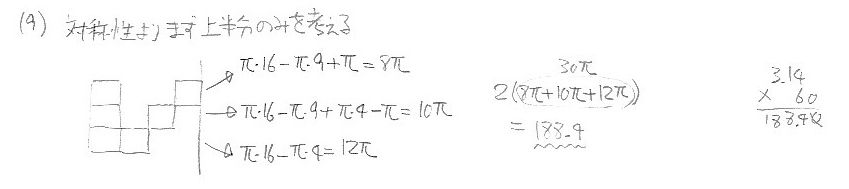 (9) 対称性よりまず上半分のみを考える
π・16-π・9+π=8π
π・16-π・9+π・4-π=10π
π・16-π・4=12π
30π
2(8π+10π+12π)
=188.4
3.14
× 60
188.40